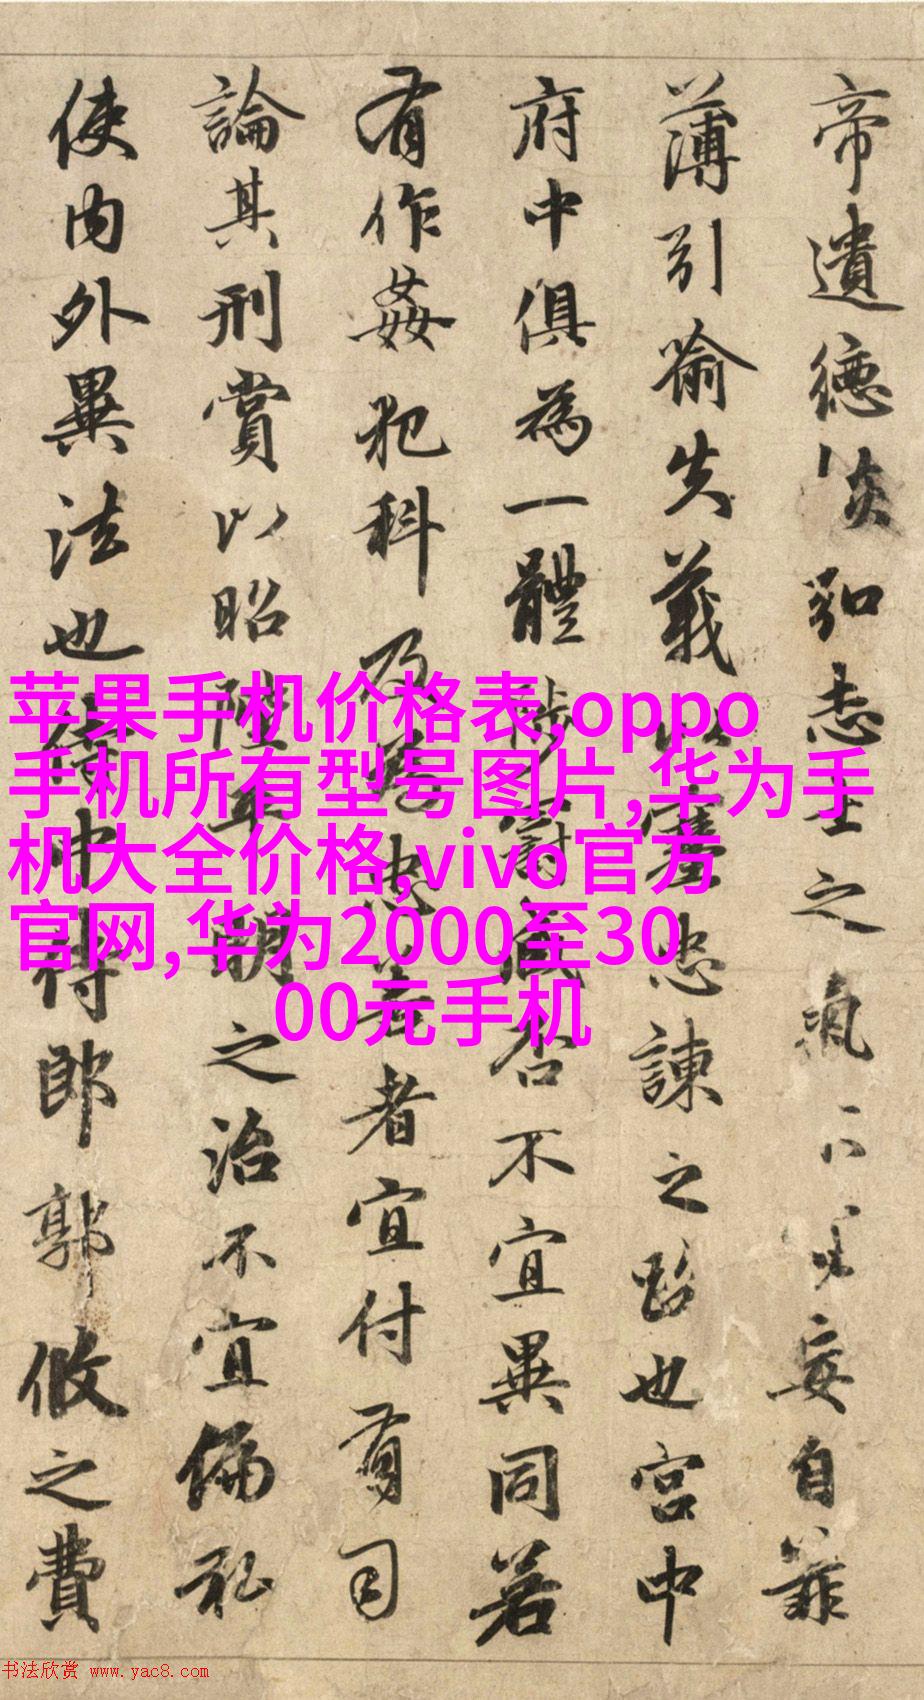 帝遺德恢弘志士之氣妄自菲
薄引喻失義以塞忠諫之路也宮中
府中俱為一體陟罰臧否不宜異同若
有作姦犯科及為忠善者宜付有司
論其刑賞以昭陛平明之治不宜偏私
使內外異法也侍中侍郎郭攸之費
苹果手机价格表,oppo
手机所有型号图片,华为手
机大全价格,vivo官方
官网,华为2000至30
00元手机
书法欣赏 www.yac8.com